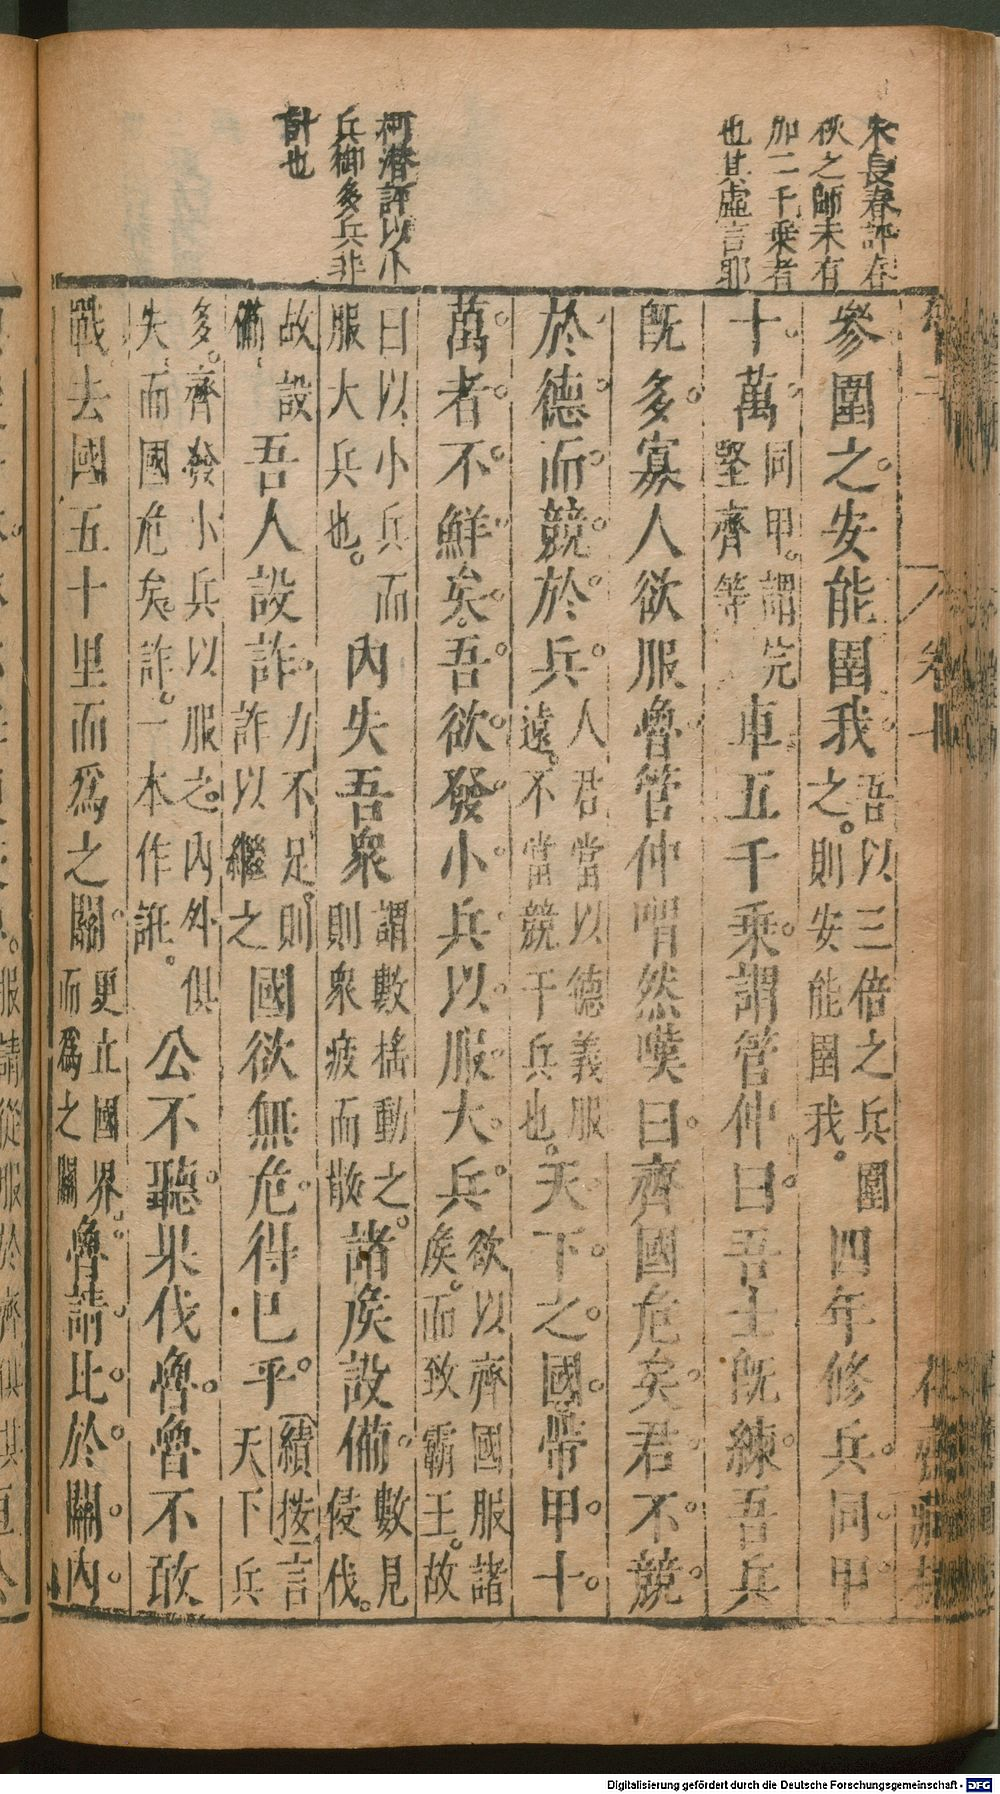 朱長春評春
秋之師未有
加二千乗者
也其虛言耶
柯潛評以小
兵御多兵非
計也
參圍之安能圉我吾以三倍之兵圍之則安能圉我四年修兵同甲
十萬同甲謂完堅齊等車五千乗謂管仲曰吾士既練吾兵
既多寡人欲服魯管仲喟然嘆曰齊國危矣君不競
於德而競於兵人君當以德義服遠不當競于兵也天下之國帶甲十
萬者不鮮矣吾欲發小兵以服大兵欲以齊國服諸矦而致霸王故
曰以小兵而服大兵也內失吾衆謂數搖動之則衆疲而散諸矦設備數見侵伐
故設備吾人設詐力不足則詐以繼之國欲無危得已乎績按言天下兵
多齊發小兵以服之內外俱失而國危矣詐一本作誑公不聽果伐魯魯不敢
戰去國五十里而爲之關更立國界而爲之關魯請比於關內
卷十
Digitalisierung gefördert durch die Deutsche Forschungsgemeinschaft - DFG